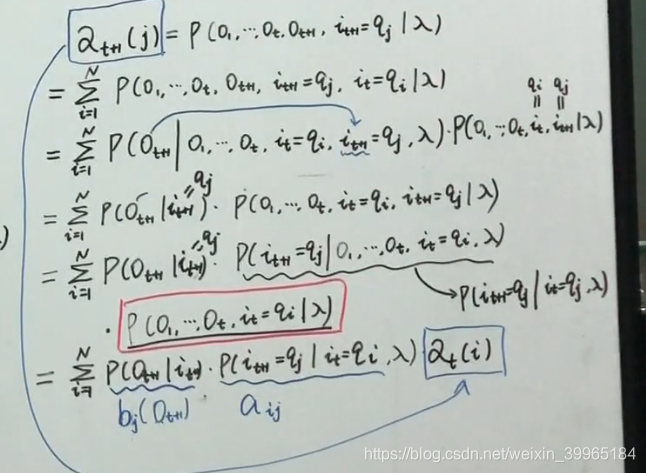 α_{t+1}(j) = P(O_1, ⋯, O_t, O_{t+1}, i_{t+1} = q_j | λ)
= Σ_{i=1}^{N} P(O_1, ⋯, O_t, O_{t+1}, i_{t+1} = q_j, i_t = q_i | λ)
q_i q_j
= Σ_{i=1}^{N} P(O_{t+1} | O_1, ⋯, O_t, i_t = q_i, i_{t+1} = q_j, λ) · P(O_1, ⋯, O_t, i_t, i_{t+1} | λ)
q_j
= Σ_{i=1}^{N} P(O_{t+1} | i_{t+1}) · P(O_1, ⋯, O_t, i_t = q_i, i_{t+1} = q_j | λ)
q_j
= Σ_{i=1}^{N} P(O_{t+1} | i_{t+1}) · P(i_{t+1} = q_j | O_1, ⋯, O_t, i_t = q_i, λ)
P(i_{t+1} = q_j | i_t = q_j, λ)
· P(O_1, ⋯, O_t, i_t = q_i | λ)
= Σ_{i=1}^{N} P(O_{t+1} | i_{t+1}) · P(i_{t+1} = q_j | i_t = q_i, λ) α_t(i)
b_j(O_{t+1}) a_{ij}
https://blog.csdn.net/weixin_39965184